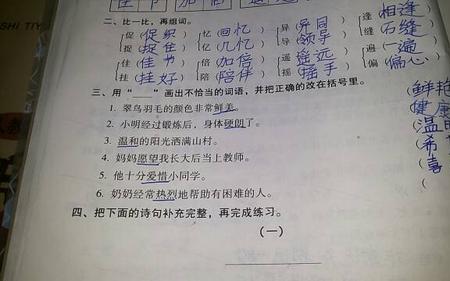 二、比一比，再组词。
促（促织） 忆（回忆） 异（异同） 逢（相逢）
捉（捉住） 亿（几亿） 导（领导） 缝（石缝）
佳（佳节） 倍（加倍） 遥（遥远） 遍（一遍）
挂（挂好） 陪（陪伴） 摇（摇手） 偏（偏心）
三、用“___”画出不恰当的词语，并把正确的改在括号里。
1. 翠鸟羽毛的颜色非常鲜美。 （鲜艳
2. 小明经过锻炼后，身体硬朗了。 （健康
3. 温和的阳光洒满山村。 （温
4. 妈妈愿望我长大后当上教师。 （希
5. 他十分爱惜小同学。 （喜
6. 奶奶经常热烈地帮助有困难的人。 （
四、把下面的诗句补充完整，再完成练习。
（一）